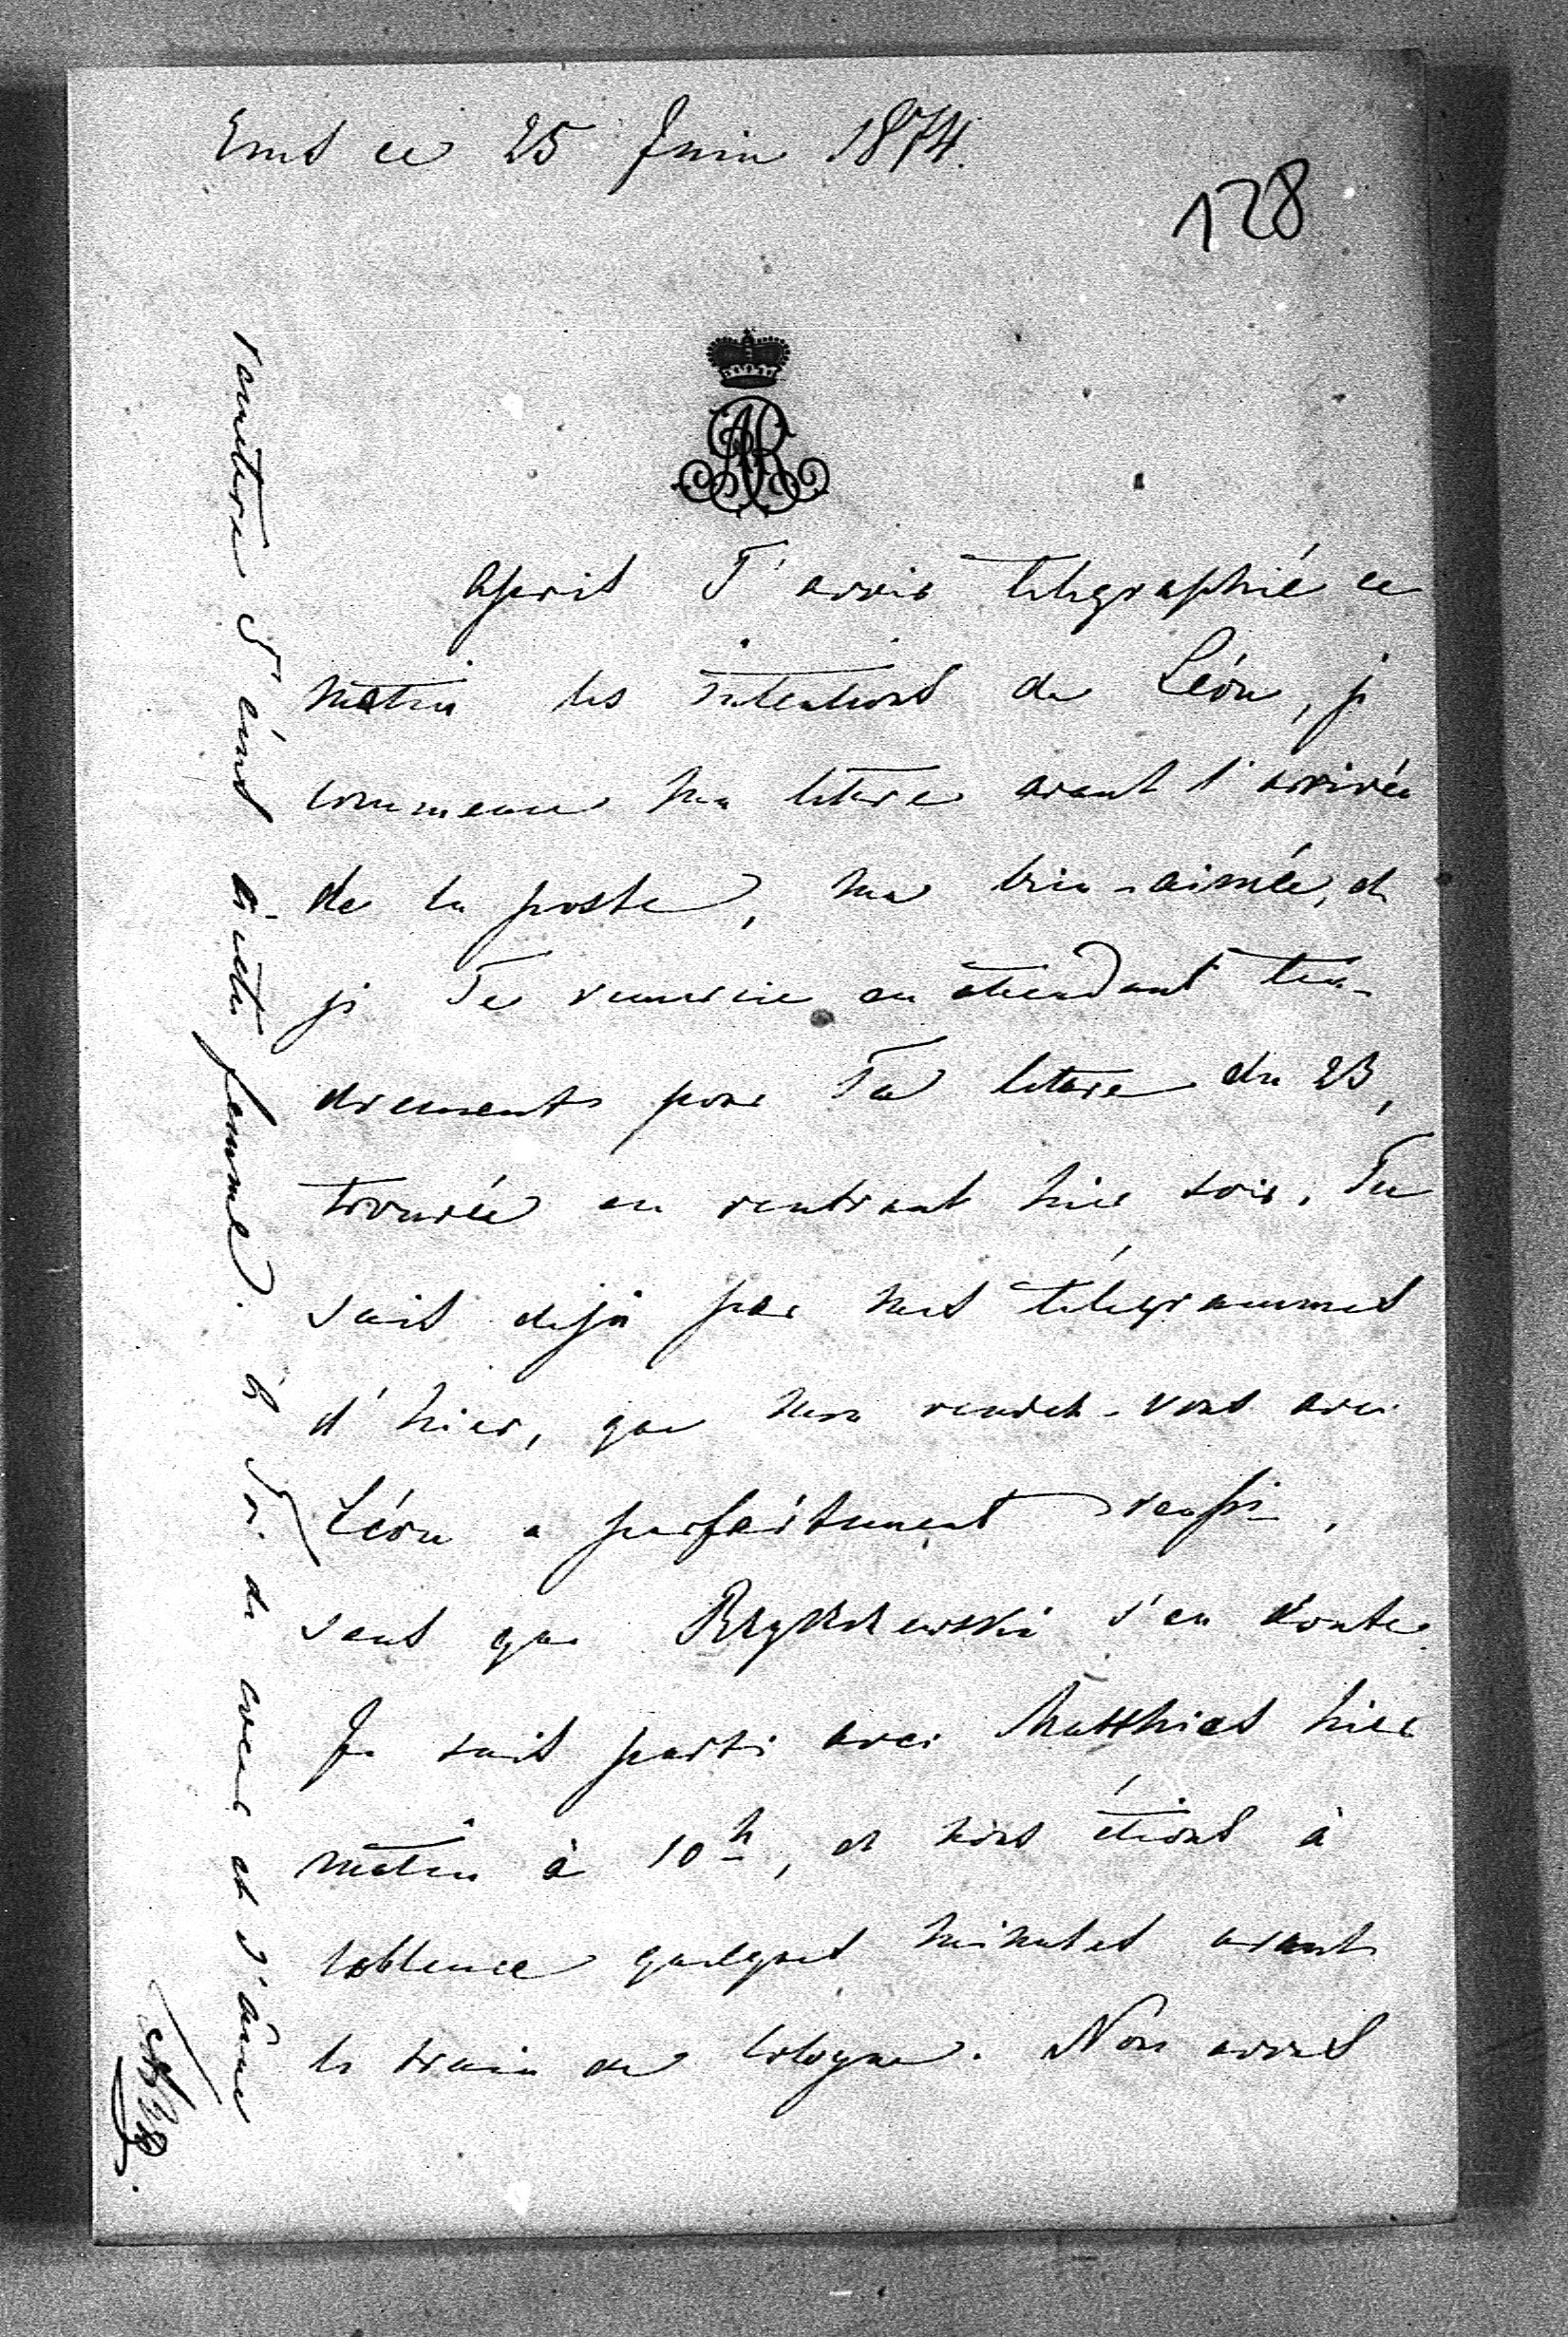 Ems ce 25 Juin 1874.
128
AR
Après T'avoir télégraphié ce
matin les intentions de Léon, je
commence ma lettre avant l'arrivée
de la poste, ma bien-aimée, et
je Te remercie en attendant ten-
drement pour Ta lettre du 23,
trouvée en rentrant hier soir. Tu
sais déjà par mes télégrammes
d'hier, que mon rendez-vous avec
Léon a parfaitement reussi,
sans que s'en doute.
Je suis parti avec Matthias hier
matin à 10h, et nous étions à
Coblence quelques minutes avant
le train de Cologne. Nous avons
femme. à Toi de coeur et d'âme